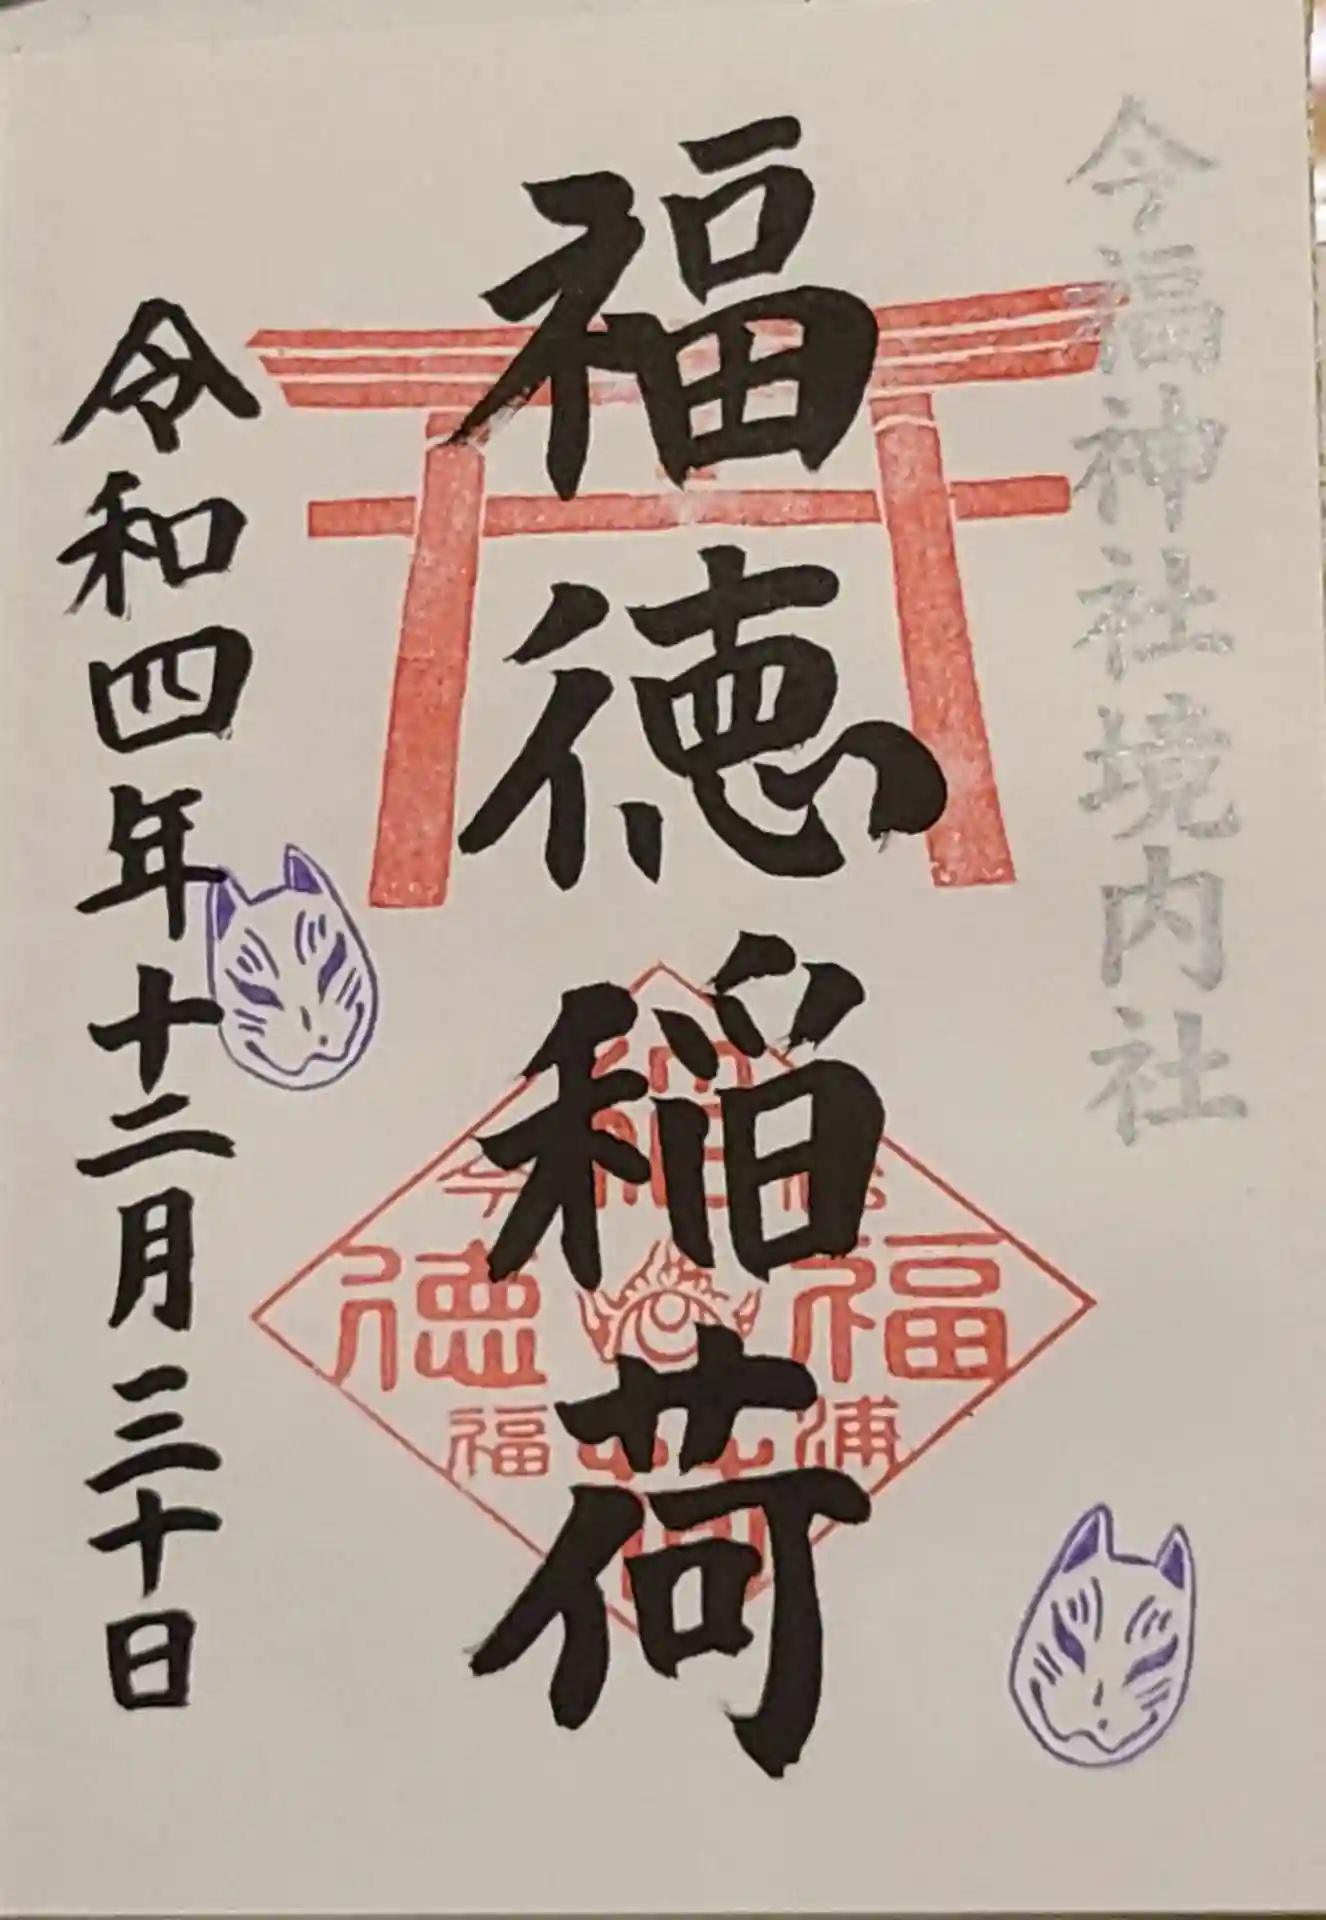 今福神社境内社
福徳稲荷
令和四年十二月三十日
稲
福
徳
荷
今
浦
福